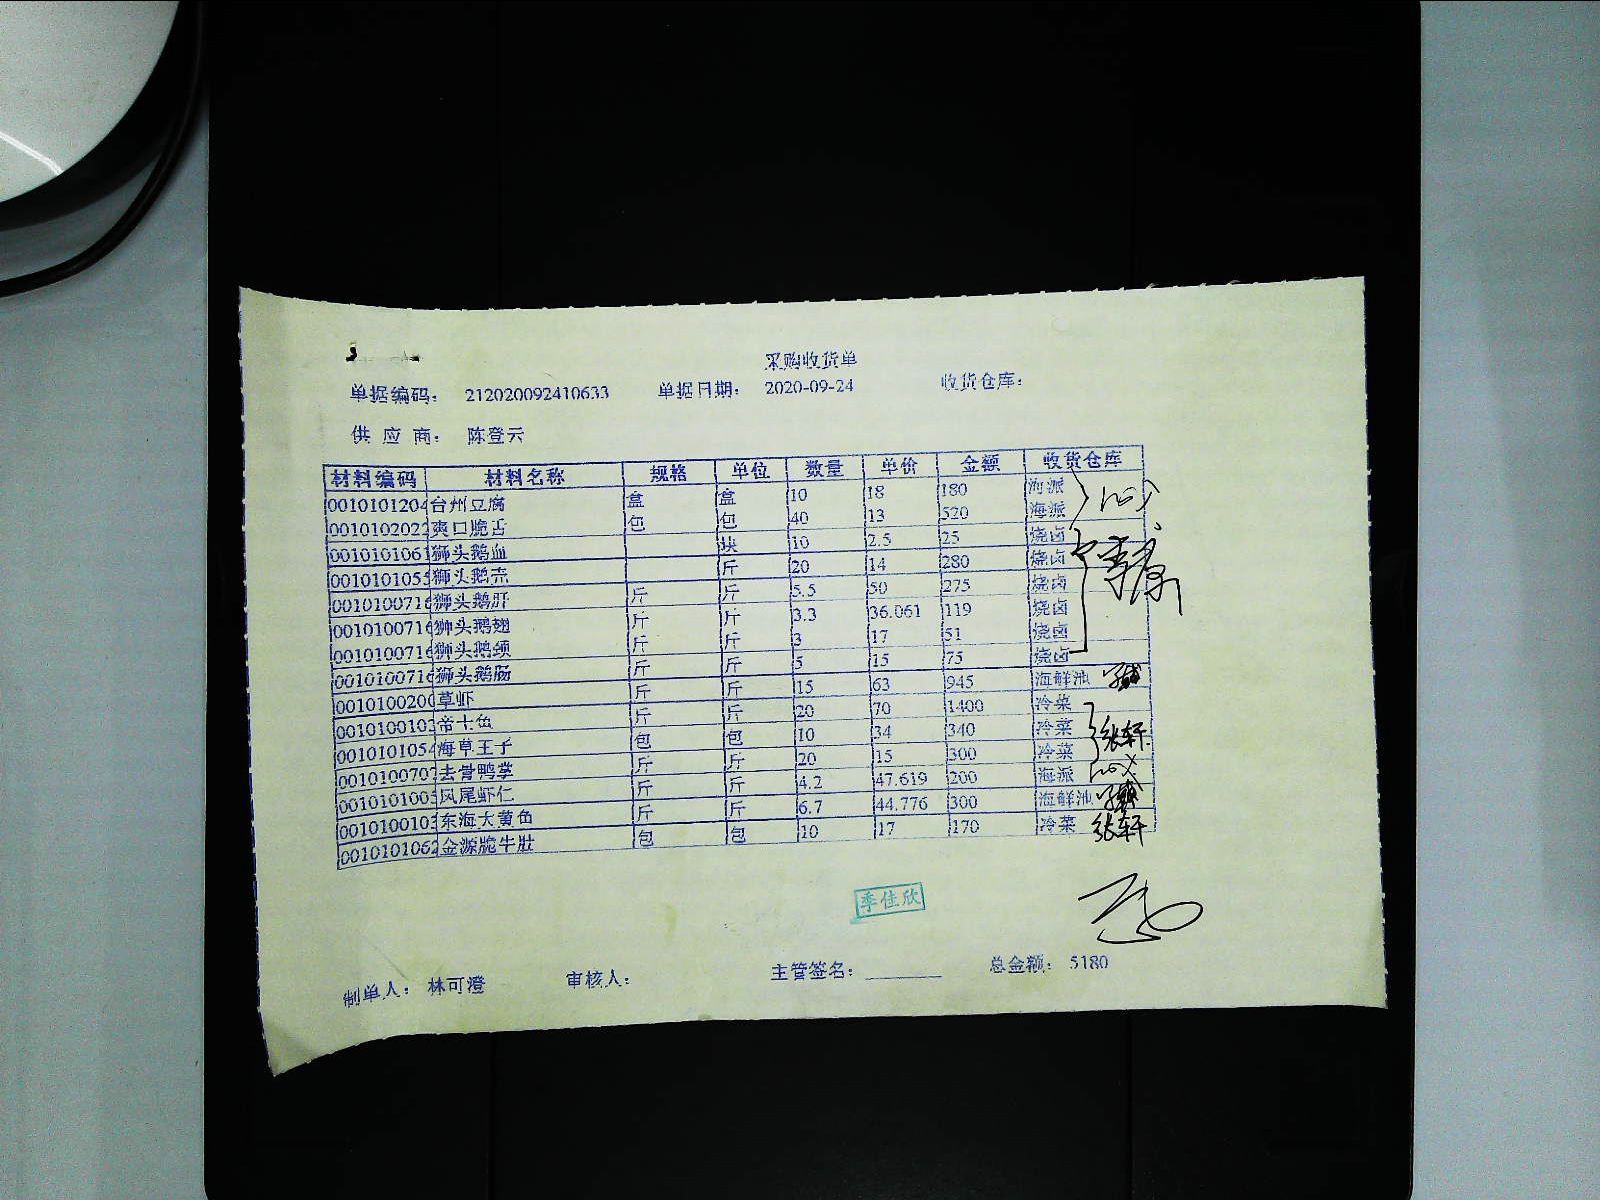 采购收货单
单据编码： 212020092410633 单据日期： 2020-09-24 收货仓库：
供 应 商： 陈登云
材料编码 材料名称 规格 单位 数量 单价 金额 收货仓库
0010101204 台州豆腐 盒 盒 10 18 180 海派
0010102022 爽口脆舌 包 包 40 13 520 海派
0010101061 狮头鹅血 块 10 2.5 25 烧卤
0010101055 狮头鹅壳 斤 20 14 280 烧卤
0010100716 狮头鹅肝 斤 斤 5.5 50 275 烧卤
0010100716 狮头鹅翅 斤 斤 3.3 36.061 119 烧卤
0010100716 狮头鹅颈 斤 斤 3 17 51 烧卤
0010100716 狮头鹅肠 斤 斤 5 15 75 烧卤
0010100200 草虾 斤 斤 15 63 945 海鲜池
0010100103 帝王鱼 斤 斤 20 70 1400 冷菜
0010101054 海草王子 包 包 10 34 340 冷菜
0010100707 去骨鸭掌 斤 斤 20 15 300 冷菜 张轩
0010101005 凤尾虾仁 斤 斤 4.2 47.619 200 海派
0010100103 东海大黄鱼 斤 斤 6.7 44.776 300 海鲜池
0010101062 金源脆牛肚 包 包 10 17 170 冷菜 张轩
季佳欣
制单人： 林可澄 审核人： 主管签名： 总金额： 5180